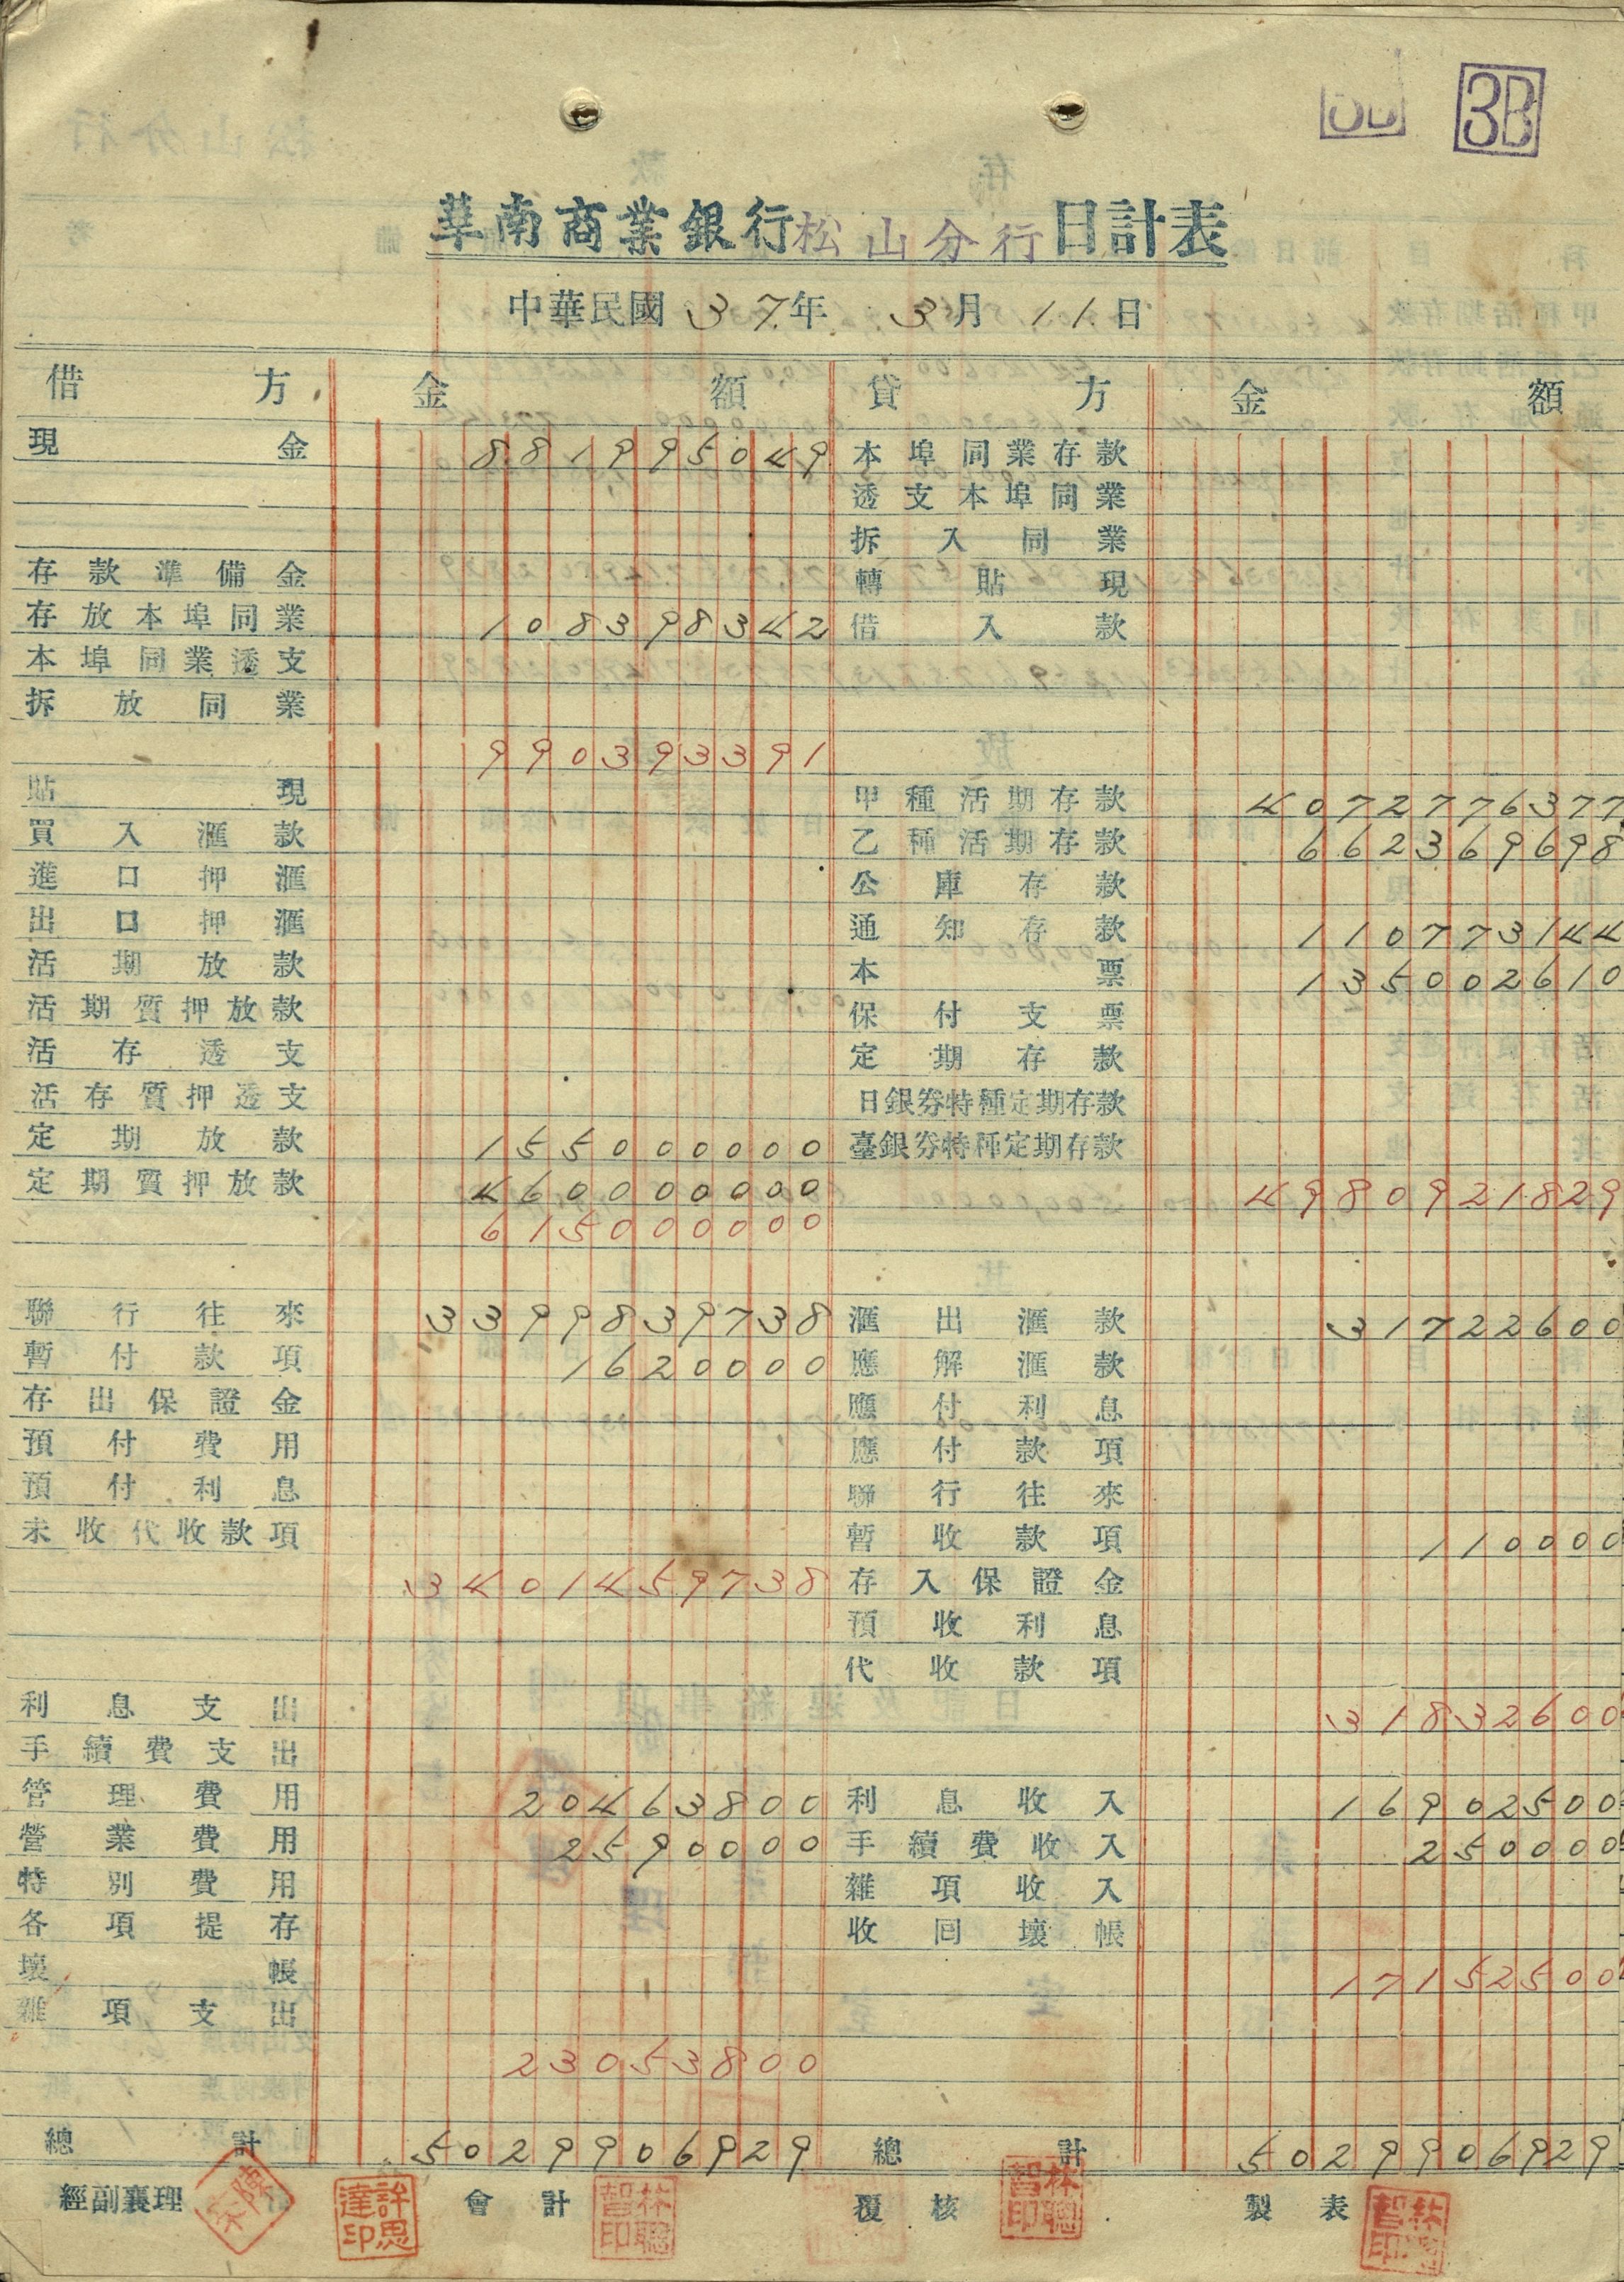 3B
華南商業銀行松山分行日計表
中華民國37年3月11日
借方 金額 貸方 金額
現金 881995049 本埠同業存款
透支本埠同業
拆入同業
存款準備金 轉貼現
存放本埠同業 108398342 借入款
本埠同業透支
拆放同業
990393391
貼現 甲種活期存款 4072776377
買入滙款 乙種活期存款 662369698
進口押滙 公庫存款
出口押滙 通知存款 110773144
活期放款 本票 135002610
活期質押放款 保付支票
活存透支 定期存款
活存質押透支 日銀券特種定期存款
定期放款 155000000 臺銀券特種定期存款
定期質押放款 460000000 4980921829
615000000
聯行往來 3399839738 滙出滙款 31722600
暫付款項 1620000 應解滙款
存出保證金 應付利息
預付費用 應付款項
預付利息 聯行往來
未收代收款項 暫收款項 110000
3401459738 存入保證金
預收利息
代收款項
利息支出 31832600
手續費支出
管理費用 20463800 利息收入 16902500
營業費用 2590000 手續費收入 250000
特別費用 雜項收入
各項提存 收回壞帳
壞帳 17152500
雜項支出
23053800
總計 5029906929 總計 5029906929
經副襄理 許恩達印 會計 林聰智印 覆核 林聰智印 製表 林聰智印